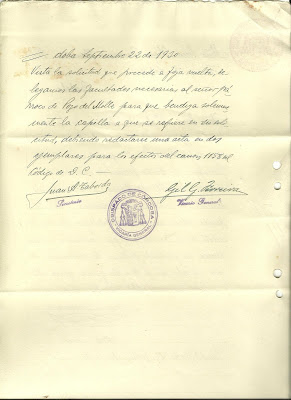 doba Septiembre 22 de 1930
Vista la solicitud que precede a foja vuelta, de
legamos las facultades necesarias al señor pá
rroco de Pozo del Molle para que bendiga solemne
mente la capilla a que se refiere en su soli
citud, debiendo redactarse una acta en dos
ejemplares para los efectos del canon 1158 del
Código de D. C. —
Juan A. Taborda
Secretario
Vicario General
OBISPADO DE CORDOBA